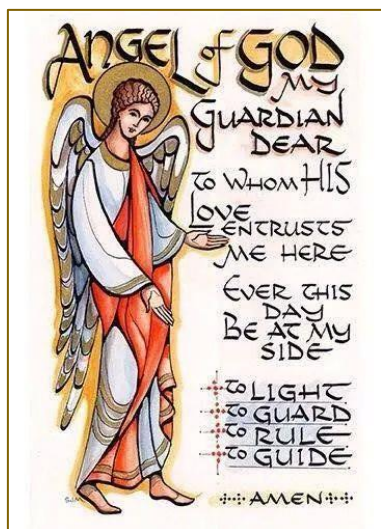 ANGEL of GOD
MY
GUARDIAN
DEAR
TO WHOM HIS
LOVE
ENTRUSTS
ME HERE
EVER THIS
DAY
BE AT MY
SIDE
to LIGHT
to GUARD
to RULE
to GUIDE
AMEN